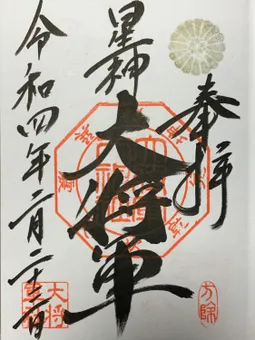 奉拝
星神
大将軍
令和四年二月二十二日
大将